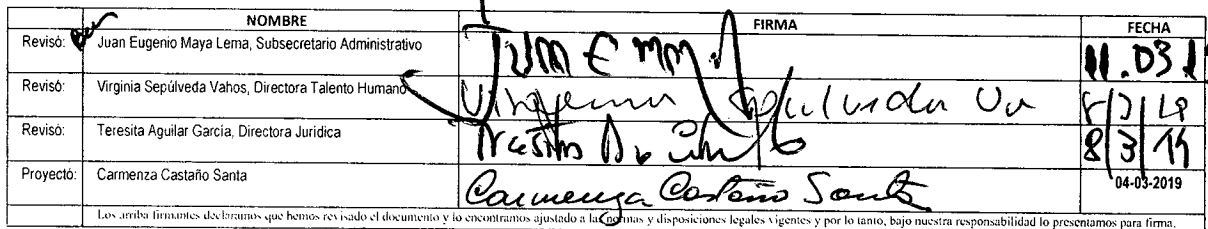 NOMBRE FIRMA FECHA
Revisó: Juan Eugenio Maya Lema, Subsecretario Administrativo 11.03
Revisó: Virginia Sepúlveda Vahos, Directora Talento Humano Virginia Sepúlveda Va
Revisó: Teresita Aguilar García, Directora Jurídica 8/3/19
Proyectó: Carmenza Castaño Santa Carmenza Castaño Santa 04-03-2019
Los arriba firmantes declaramos que hemos revisado el documento y lo encontramos ajustado a las normas y disposiciones legales vigentes y por lo tanto, bajo nuestra responsabilidad lo presentamos para firma.